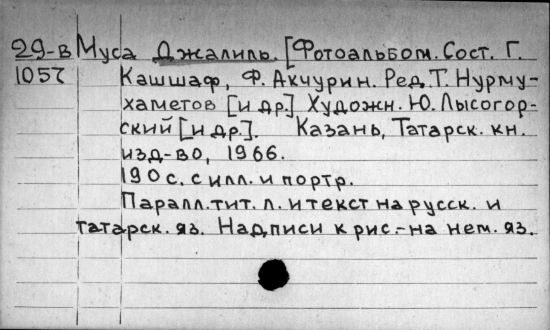 29-в Муса Джалиль. [Фотоальбом. Сост. Г.
1057 Кашшаф, Ф. Акчурин. Ред. Т. Нурму-
хаметов [и др.] Художн. Ю. Лысогор-
ский [и др.]. Казань, Татарск. кн.
изд-во, 1966.
190 с. с илл. и портр.
Паралл. тит. л. и текст на русск. и
татарск. яз. Надписи к рис.-на нем. яз.